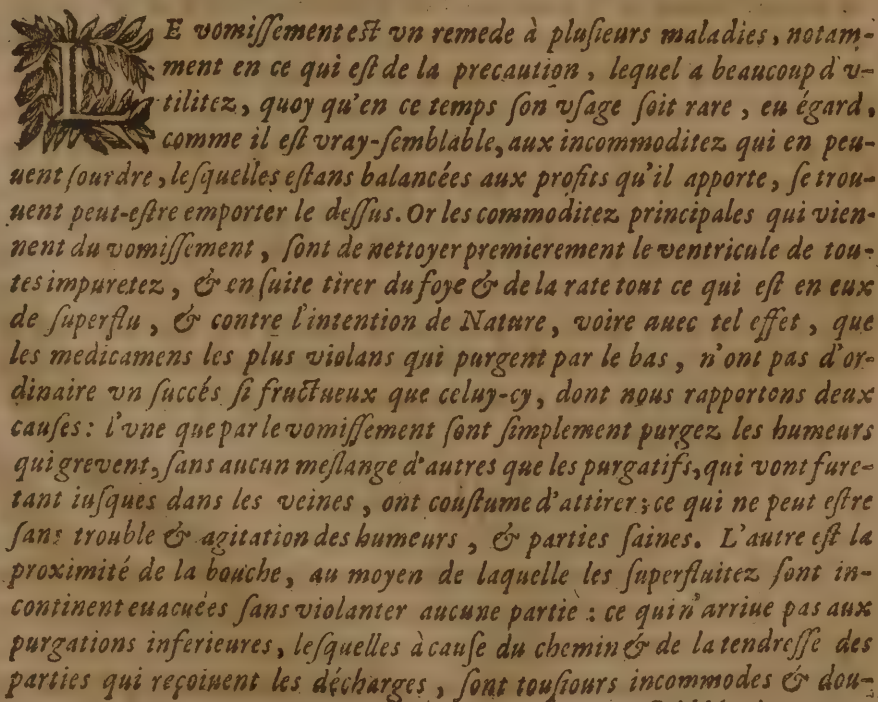 LE vomiſſement eſt vn remede à pluſieurs maladies, notam-
ment en ce qui eſt de la precaution, lequel a beaucoup d'v-
tilitez, quoy qu'en ce temps ſon vſage ſoit rare, eu égard,
comme il eſt vray-ſemblable, aux incommoditez qui en peu-
uent ſourdre, leſquelles eſtans balancées aux profits qu'il apporte, ſe trou-
uent peut-eſtre emporter le deſſus. Or les commoditez principales qui vien-
nent du vomiſſement, ſont de nettoyer premierement le ventricule de tou-
tes impuretez, & en ſuite tirer du foye & de la rate tout ce qui eſt en eux
de ſuperflu, & contre l'intention de Nature, voire auec tel effet, que
les medicamens les plus violans qui purgent par le bas, n'ont pas d'or-
dinaire vn ſuccés ſi fructueux que celuy-cy, dont nous rapportons deux
cauſes: l'vne que par le vomiſſement ſont ſimplement purgez les humeurs
qui grevent, ſans aucun meſlange d'autres que les purgatifs, qui vont fure-
tant iuſques dans les veines, ont couſtume d'attirer; ce qui ne peut eſtre
ſans trouble & agitation des humeurs, & parties ſaines. L'autre eſt la
proximité de la bouche, au moyen de laquelle les ſuperfluitez ſont in-
continent euacuées ſans violanter aucune partie: ce qui n'arriue pas aux
purgations inferieures, leſquelles à cauſe du chemin & de la tendreſſe des
parties qui reçoiuent les décharges, ſont touſiours incommodes & dou-